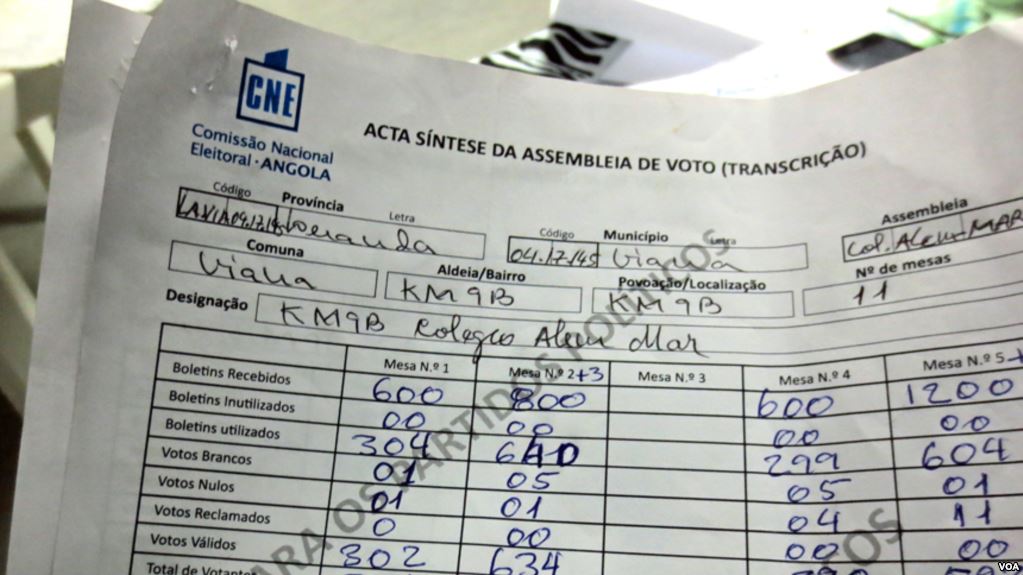 CNE
Comissão Nacional
Eleitoral · ANGOLA
ACTA SÍNTESE DA ASSEMBLEIA DE VOTO (TRANSCRIÇÃO)
Código Província Letra
Código Município Letra
Assembleia
04.12.145 Viana
Col. Alem MAR
Comuna Aldeia/Bairro Povoação/Localização Nº de mesas
Viana KM9B KM9B 11
Designação KM9B Colegio Alem Mar
Mesa N.º 1 Mesa N.º 2+3 Mesa N.º 3 Mesa N.º 4 Mesa N.º 5
Boletins Recebidos 600 800 600 1200
Boletins Inutilizados 00 00 00 00
Boletins utilizados 304 640 299 604
Votos Brancos 01 05 05 01
Votos Nulos 01 01 04 11
Votos Reclamados 0 00 00 00
Votos Válidos 302 634
Total de
PARA OS PARTIDOS POLÍTICOS
VOA